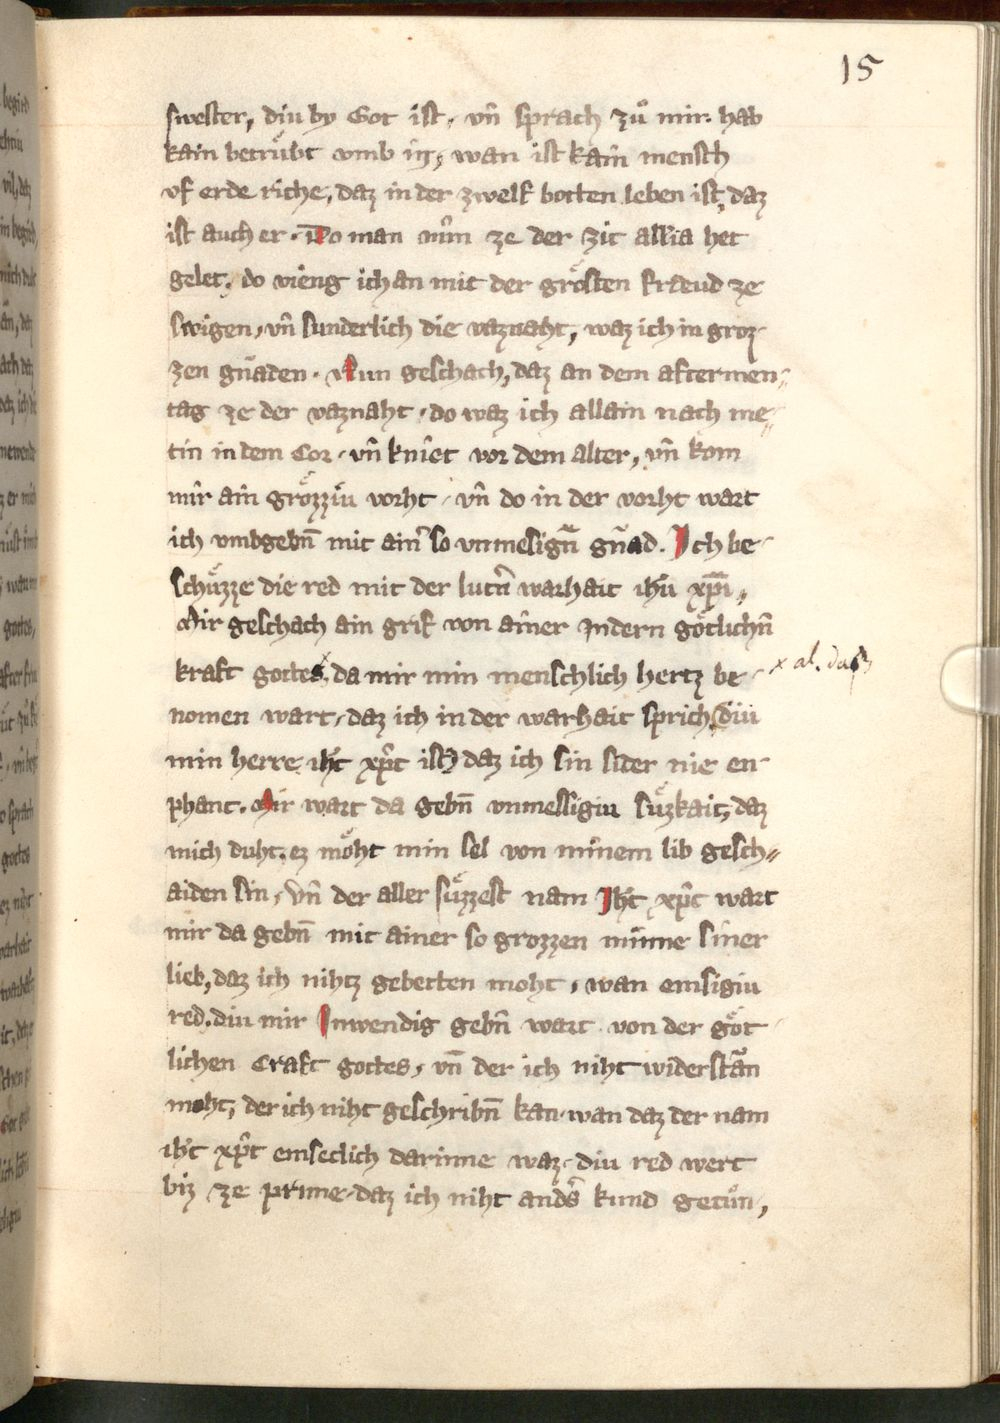 15
swester, diu by Got ist, vn̄ sprach zuͦ mir. hab
kain betruͤbt vmb in, wan ist kain mensch
vf erde riche, daz in der zwelf botten leben ist, daz
ist auch er. Do man nun ze der zit allia het
gelet. do vieng ich an mit der groͤsten fraeud ze
swigen, vn̄ sunderlich die vaznaht, waz ich in groz-
zen gnaden. Nun geschach, daz an dem aftermen-
tag ze der vaznaht, do waz ich allain nach me-
tin in dem Cor, vn̄ kniet vor dem alter, vn̄ kom
mir ain groͤzziu vorht, vn̄ do in der vorht wart
ich vmbgebn̄ mit ain̾ so vnmesign̄ gnad. Ich be-
schuͤzze die red mit der lutrn̄ warhait ihū xp̄i,
Mir geschach ain grif von ainer Indern goͤtlichn̄
kraft gottes x da mir min menschlich hertz be-
x al. daß
nomen wart, daz ich in der warhait sprich, (diu
min herre ihc xp̄c ist) daz ich sin sider nie en-
phant. Mir wart da gebn̄ vnmessigiu suͤzkait, daz
mich duht, ez moͤht min sel von minem lib gesch-
aiden sin, Vn̄ der aller suͤzzest nam Ihc xp̄c wart
mir da gebn̄ mit ainer so grozzen minne siner
lieb, daz ich nihtz gebetten moht, wan emsigiu
red, diu mir Inwendig gebn̄ wart von der goͤt-
lichen Craft gottes, vn̄ der ich niht widerstan
moht, der ich niht geschribn̄ kan, wan daz der nam
ihc xp̄c emseclich darinne waz, diu red wert
biz ze prime, daz ich niht anders kund getuͦn,